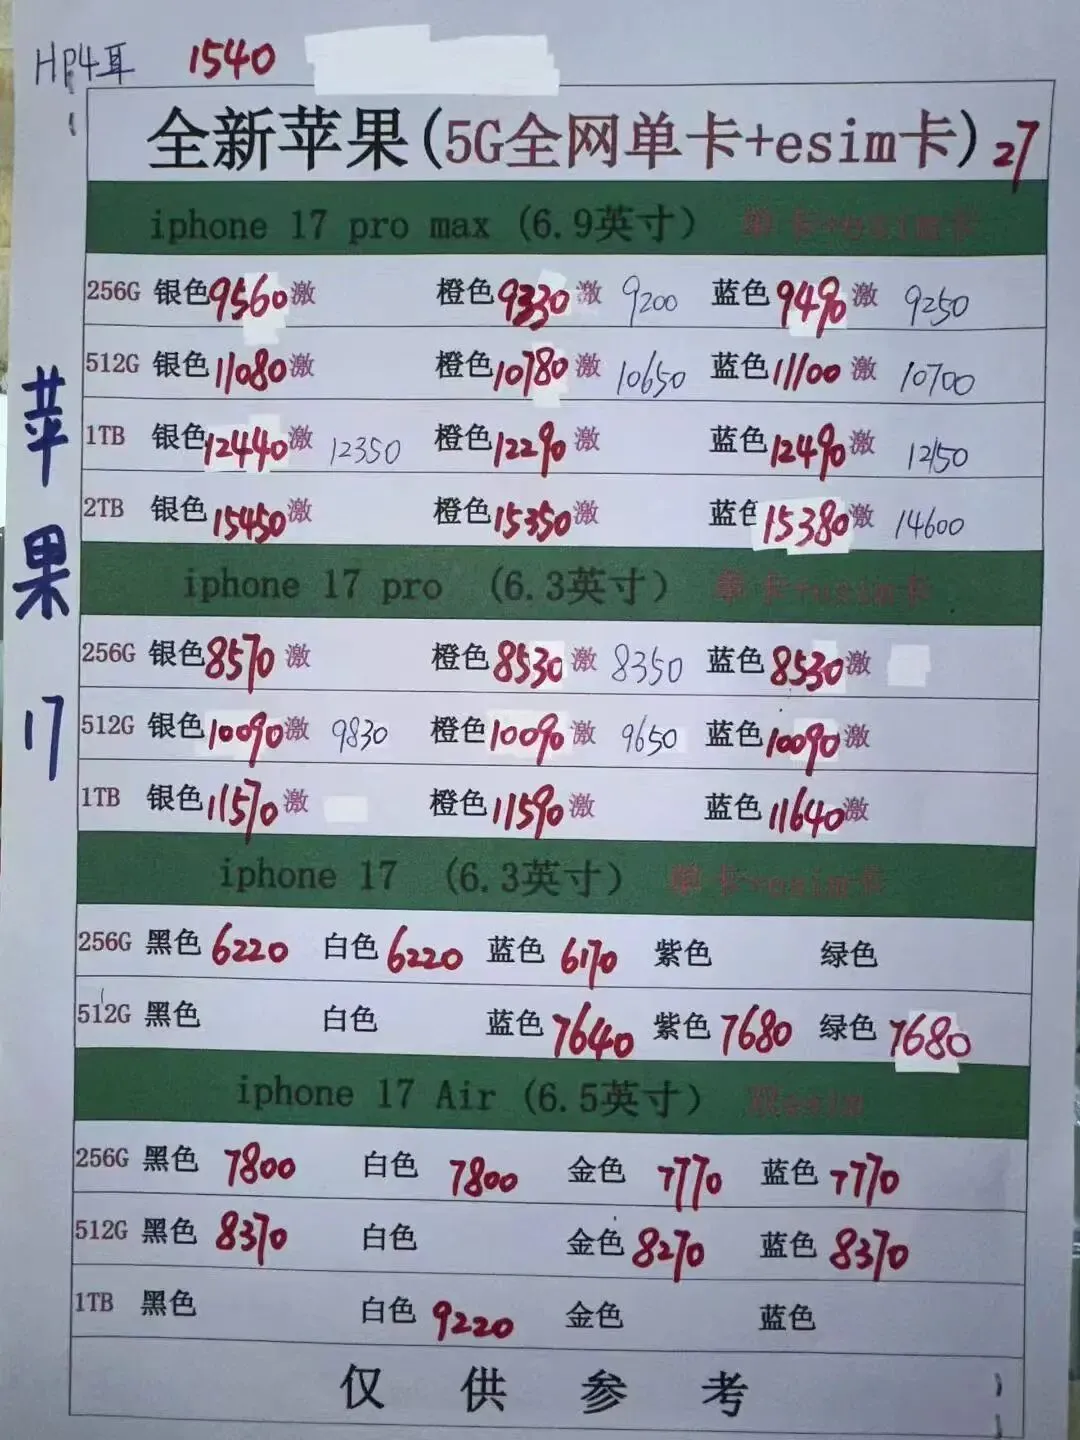 HP4耳 1540
全新苹果(5G全网单卡+esim卡) 27
iphone 17 pro max (6.9英寸) 单卡+esim卡
256G 银色 9560 激 橙色 9330 激 9200 蓝色 9490 激 9250
512G 银色 11080 激 橙色 10780 激 10650 蓝色 11100 激 10700
1TB 银色 12440 激 12350 橙色 12290 激 蓝色 12490 激 12150
2TB 银色 15450 激 橙色 15350 激 蓝色 15380 激 14600
iphone 17 pro (6.3英寸) 单卡+esim卡
256G 银色 8570 激 橙色 8530 激 8350 蓝色 8530 激
512G 银色 10090 激 9830 橙色 10090 激 9650 蓝色 10090 激
1TB 银色 11570 激 橙色 11590 激 蓝色 11640 激
iphone 17 (6.3英寸) 单卡+esim卡
256G 黑色 6220 白色 6220 蓝色 6170 紫色 绿色
512G 黑色 白色 蓝色 7640 紫色 7680 绿色 7680
iphone 17 Air (6.5英寸) esim
256G 黑色 7800 白色 7800 金色 7770 蓝色 7770
512G 黑色 8370 白色 金色 8270 蓝色 8370
1TB 黑色 白色 9220 金色 蓝色
仅供参考
苹果 17